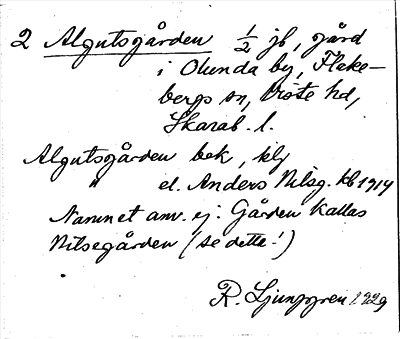 2 Algutsgården 1/2 jb, gård
i Olunda by, Flake-
bergs sn, Viste hd,
Skarab. l.
Algutsgården bek, kbj
" el. Anders Nilsg. kb 1914
Namnet anv. ej. Gården kallas
Nilsegården (se dette!)
R. Ljunggren 1929